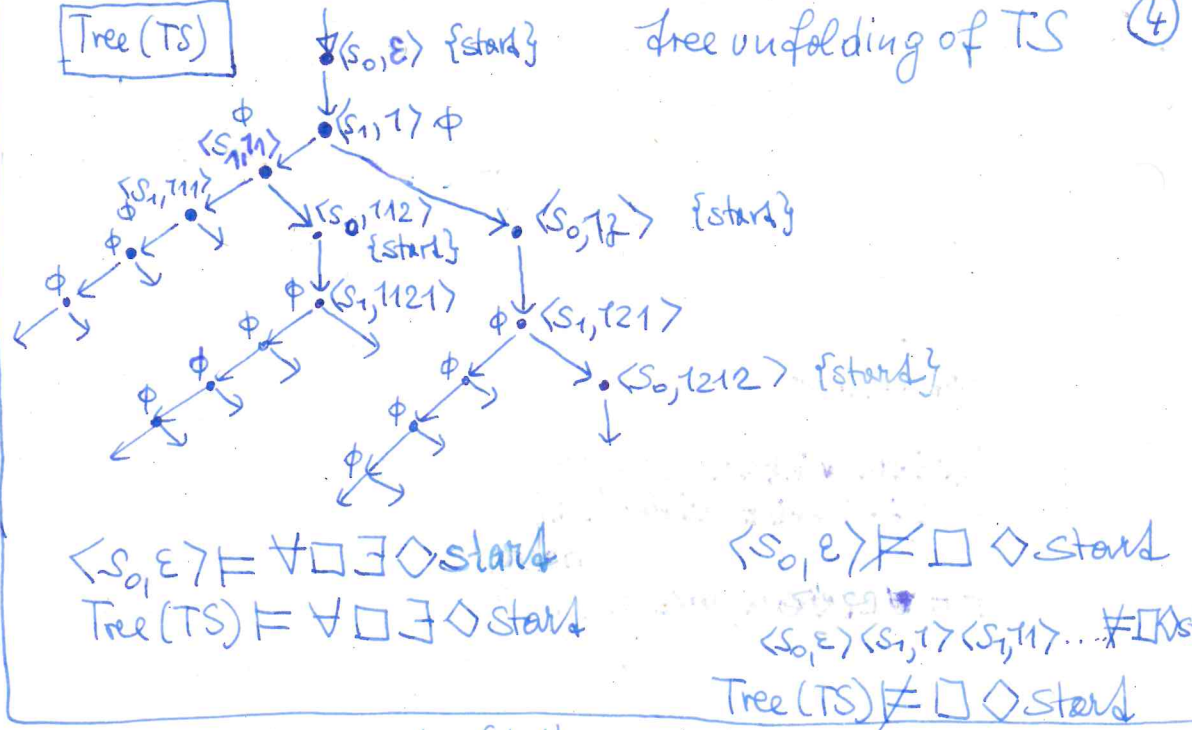 Tree(TS)
⟨s₀,ε⟩ {start}
tree unfolding of TS
④
⟨s₁,1⟩ ϕ
ϕ
⟨s₁,11⟩
⟨s₁,111⟩
ϕ
⟨s₀,112⟩
{start}
⟨s₀,12⟩ {start}
ϕ
ϕ
ϕ ⟨s₁,1121⟩
ϕ
ϕ
ϕ
ϕ ⟨s₁,121⟩
ϕ
ϕ
ϕ
⟨s₀,1212⟩ {start}
⟨s₀,ε⟩ ⊨ ∀□∃◇start
Tree(TS) ⊨ ∀□∃◇start
⟨s₀,ε⟩ ⊭ □◇start
⟨s₀,ε⟩⟨s₁,1⟩⟨s₁,11⟩... ⊭ □◇s
Tree(TS) ⊭ □◇start